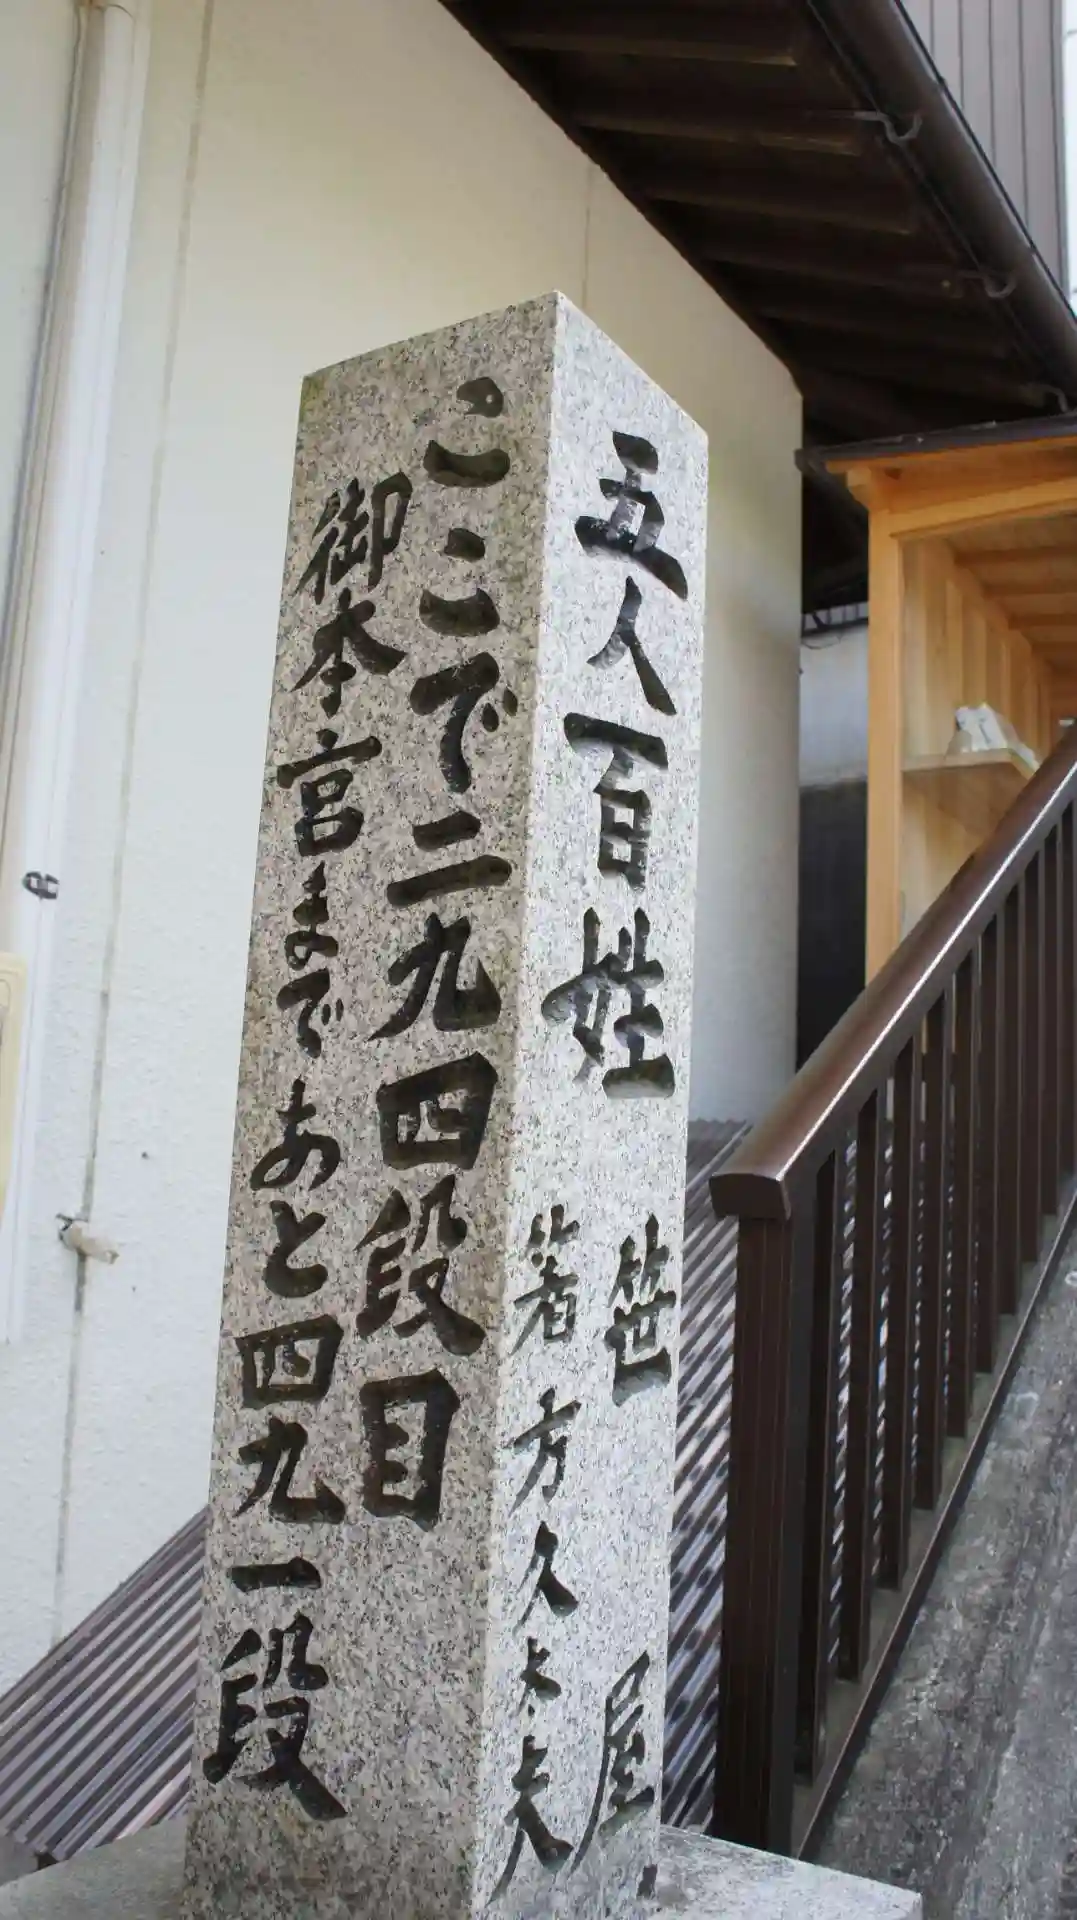 ここで二九四段目
御本宮まであと四九一段
五人百姓
笹屋
箸方久大夫